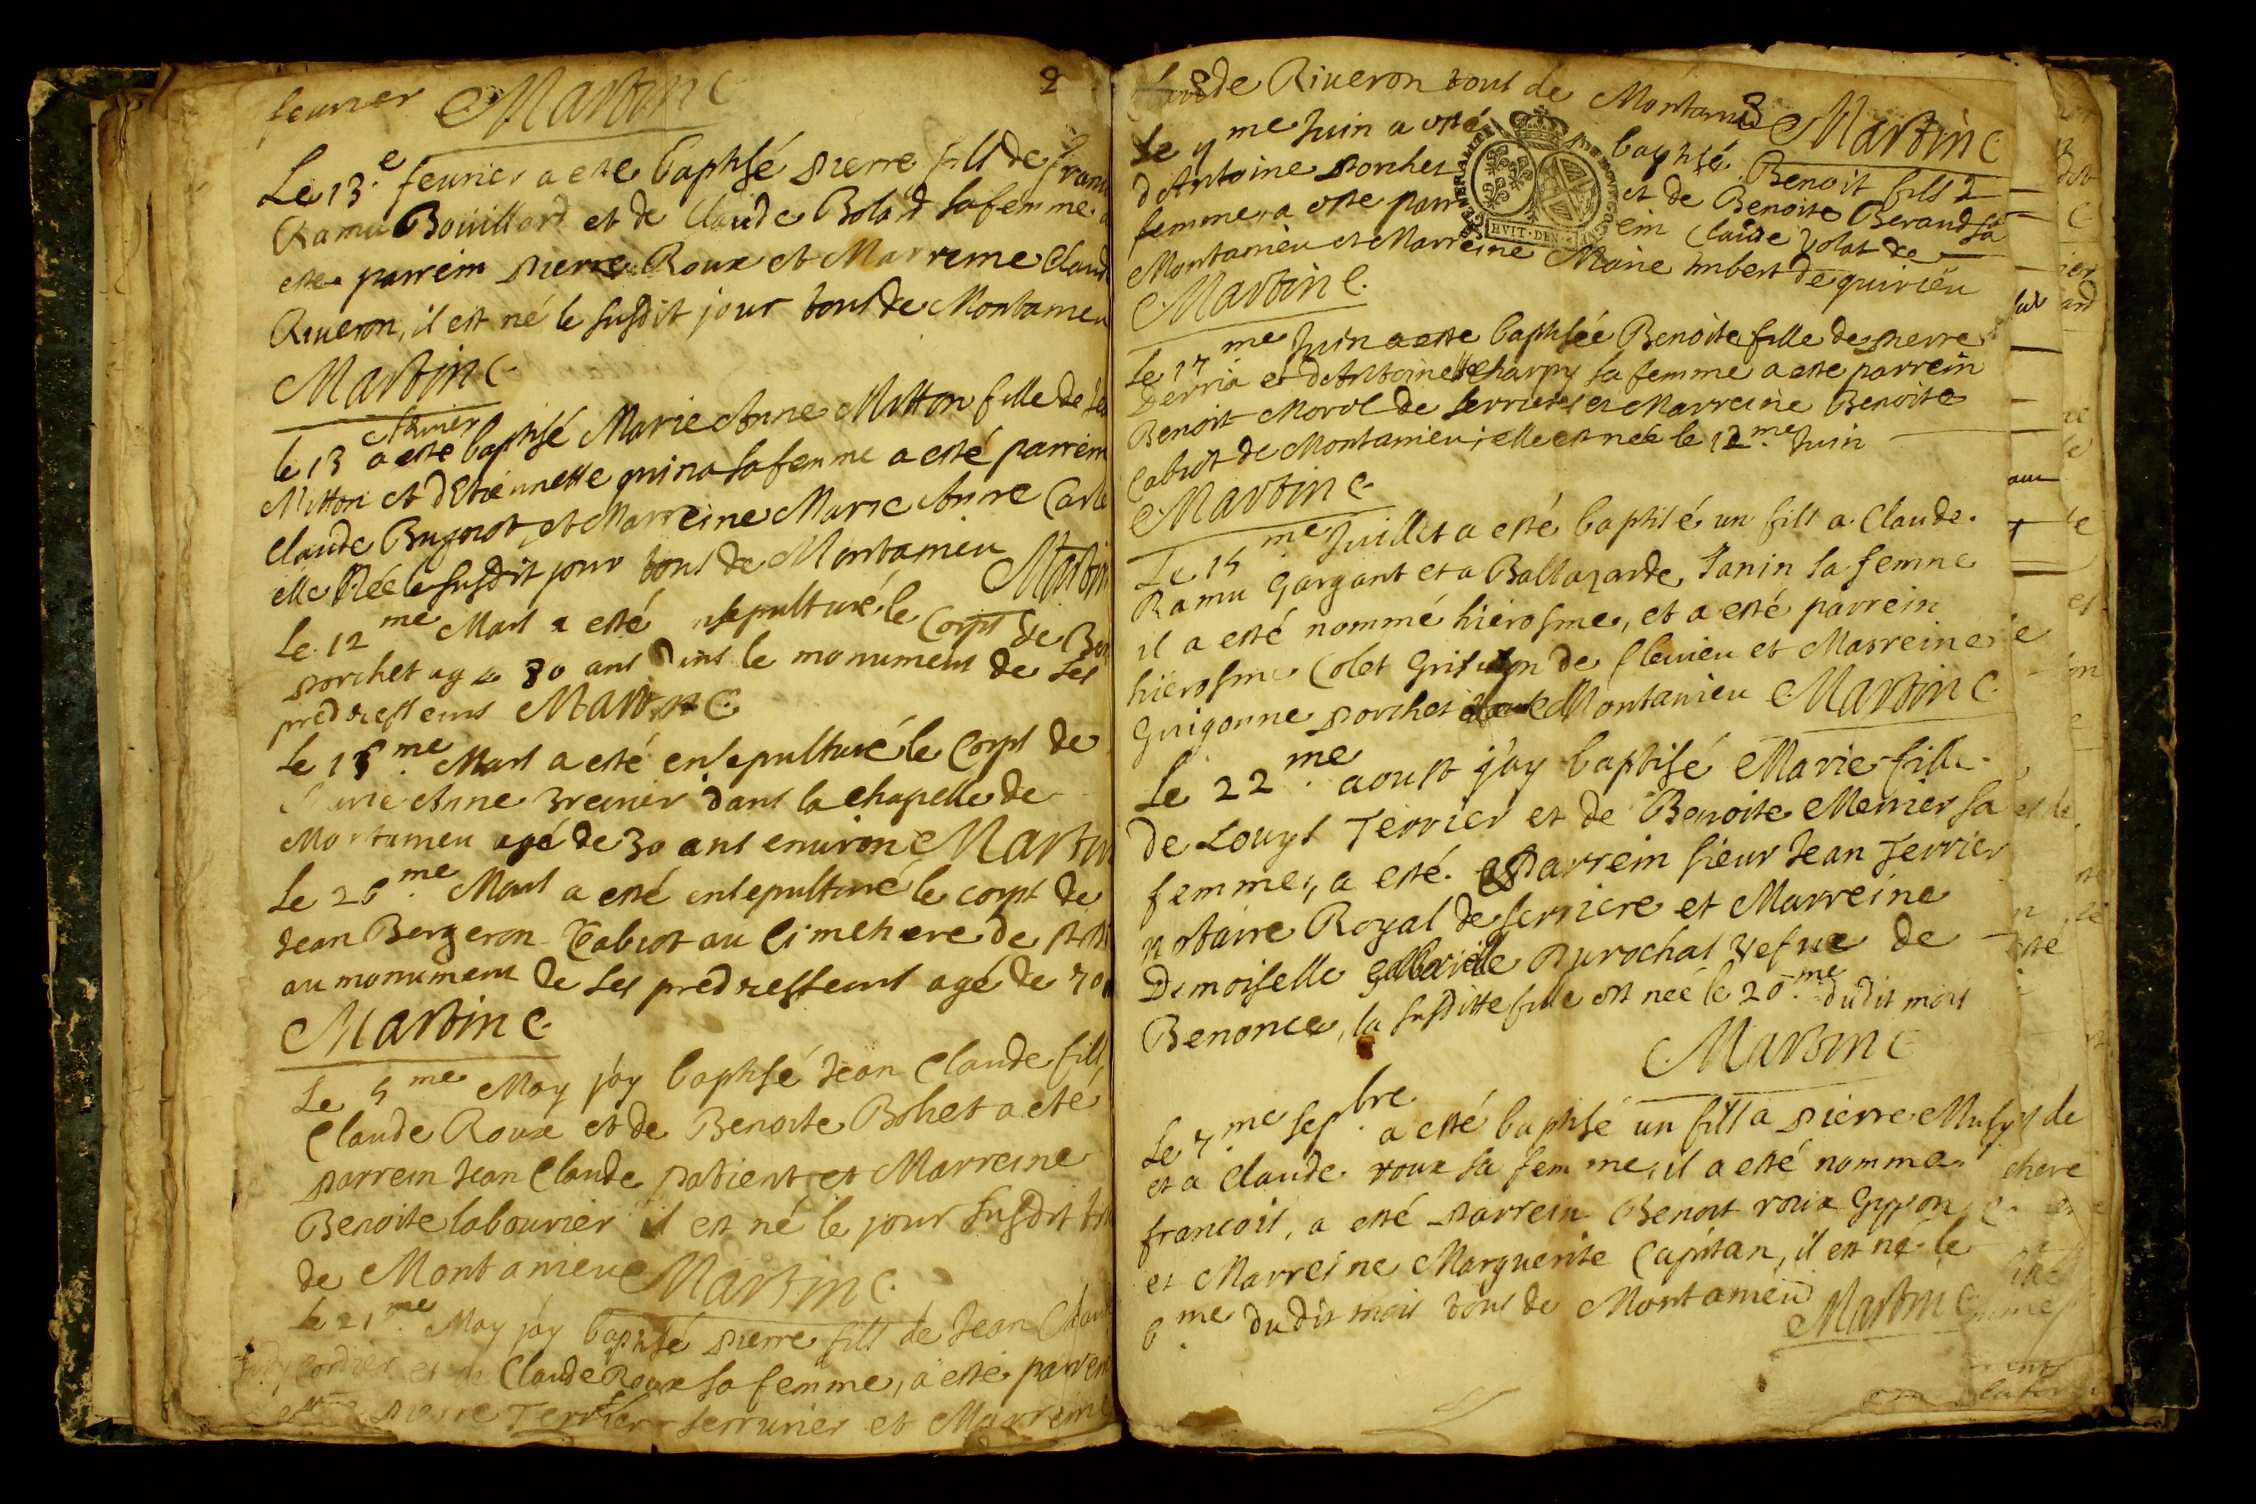 feurier Martin C
2
Le 13.e feurier a esté baptisé pierre fils de
Ramu Bouillard et de Claude Bolard sa femme a
esté parrein pierre Roux et Marreine Claud
Riueron, il est né le susdit jour tous de Montamieu
Martin C.
feurier
le 13 a esté baptisé Marie Anne Mitton fille de
Mitton et d'Etiennette quina sa femme a esté parrein
Claude Bugnot, et Marreine Marie Anne
elle Née le susdit jour tous de Montamieu Martin
Le 12 me Mars a esté ensepulturé le Corps de
porchet agé 80 ans Dans le monument de ses
predresseurs Martin C.
Le 15 me Mars a esté ensepulturé le Corps de
Marie Anne dans la chapelle de
Montamieu agé de 30 ans enuiron Martin
Le 26 me Mars a esté ensepulturé le corps de
Jean Bergeron Cabiot au Cimetiere de
au monument de ses predresseurs agé de 70
Martin C.
Le 5 me May j'ay baptisé Jean Claude fils
Claude Roux et de Benoite Bohet a eté
parrein Jean Claude patient et Marreine
Benoite labourier il est né le jour susdit
de Montamieu Martin C.
Le 21 me May j'ay baptisé pierre fils de Jean
Cordier et de Claude Roux sa femme, a esté parrein
pierre Terrier serrurier et Marreine
Claude Riueron tous de Montamieu Martin C
3
Le me Juin a esté baptisé Benoit fils
d'Antoine porchet et de Benoite Beraud sa
femme, a esté parrein Claude Volat de
Montamieu et Marreine Marie Imbert de quirieu
GENERALITÉ
HVIT DEN
Martin C.
Le 17 me Juin a esté baptisée Benoite fille de pierre
Derria et d'Antoinette charpy sa femme a esté parrein
Benoit Morel de serrieres et Marreine Benoite
Cabiot de Montamieu; elle est née le 12 me Juin
Martin C.
Le 15 me Juillet a esté baptisé un fils a Claude
Ramu gargant et a Baltazarde Janin sa femme
il a esté nommé hierosme, et a esté parrein
hierosme Colet de fleuieu et Marreine
Guigonne porchet de Montamieu Martin C.
Le 22 me aoust j'ay baptisé Marie fille
de Louys Terrier et de Benoite Menier sa
femme, a esté parrein sieur Jean Terrier
notaire Royal de serriere et Marreine
Demoiselle gabrielle Durochat vefue de
Benonce, la susditte fille est née le 20 me dudit mois
Martin C
Le 7 me sep.bre a esté baptisé un fils a pierre
et a Claude roux sa femme, il a esté nommé
francois, a esté parrein Benoit roux Gyson
et Marreine Marguerite Capitan, il est né le
6 me dudit mois tous de Montamieu Martin C